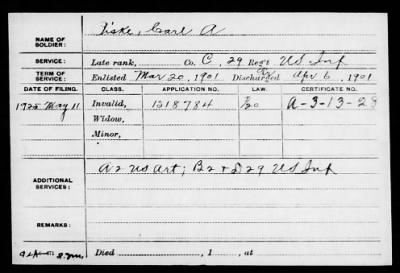 NAME OF SOLDIER: Fiske, Carl A
SERVICE: Late rank, Co. C, 29 Reg't US Inf
TERM OF SERVICE: Enlisted Mar 20, 1901 Discharged Apr 6, 1901
DATE OF FILING. CLASS. APPLICATION NO. LAW. CERTIFICATE NO.
1925 May 11 Invalid, 1218784 A-3-13-28
Widow,
Minor,
ADDITIONAL SERVICES: A2 US Art; B2 + D29 US Inf
REMARKS:
Died , 1 , at